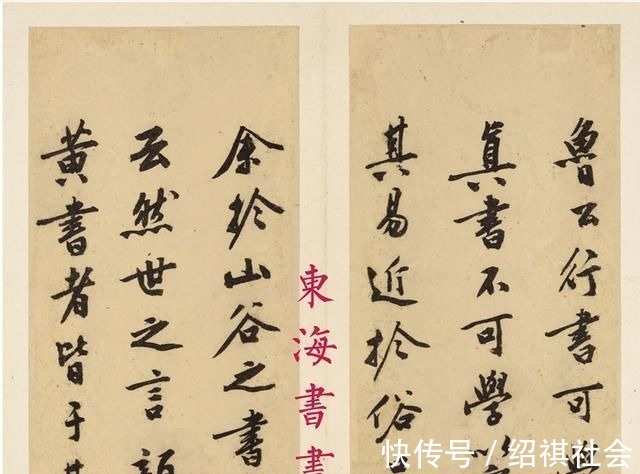 魯公行書可
真書不可學
其易近於俗
余於山谷之書
云然世之言
黃書者皆于
東海書畫
快传号／绍祺社会